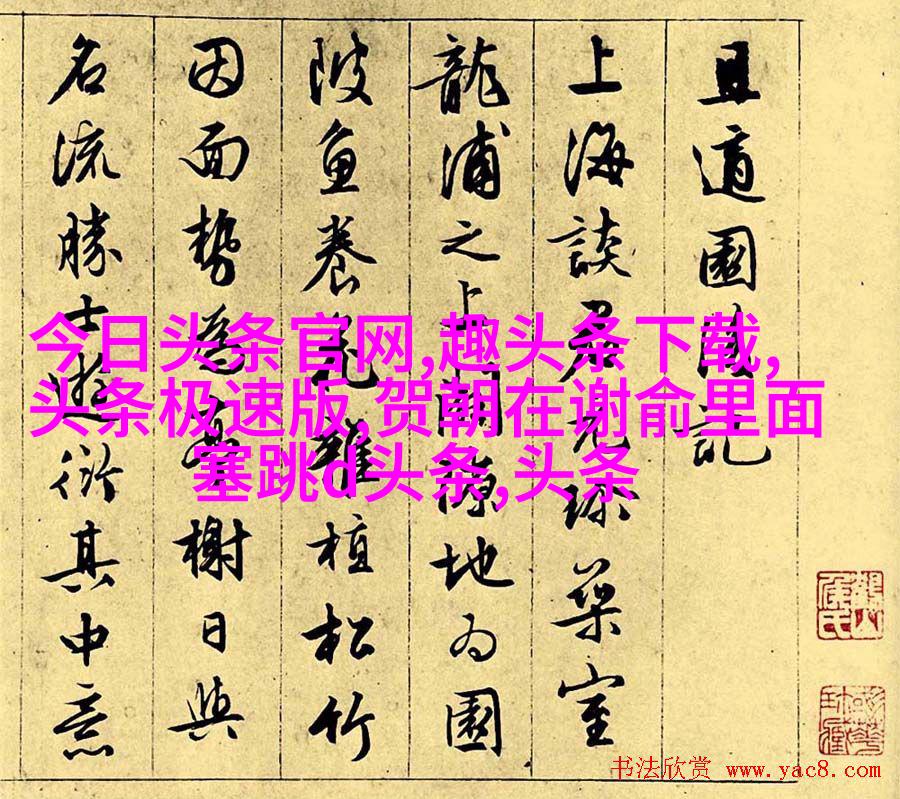 且適園記
上海談君元珎築室
龍浦之上源地為園
陂魚養花雜植松竹
因面勢為臺榭日與
名流勝士遊衍其中意
今日头条官网,趣头条下载,
头条极速版,贺朝在谢俞里面
塞跳d头条,头条
书法欣赏 www.yac8.com